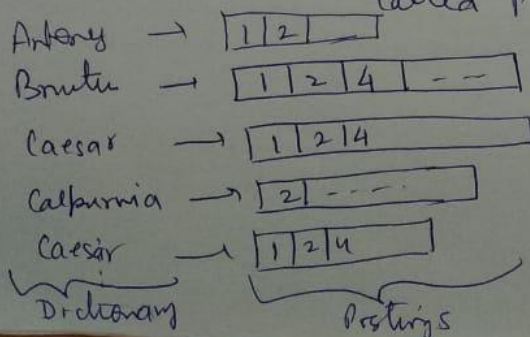 called
Antony → 1 2
Brutu → 1 2 4 - -
Caesar → 1 2 4
Calpurnia → 2 - - - -
Caesar → 1 2 4
Dictionary Postings